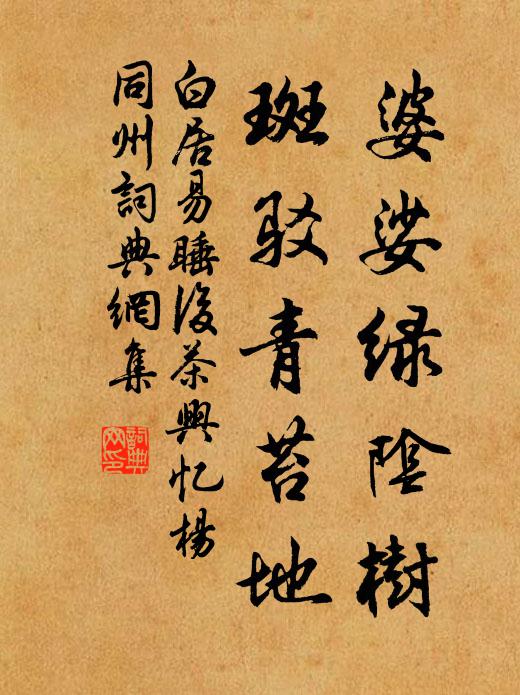 婆娑绿陰樹
斑驳青苔地
白居易睡後茶興忆楊
同州詞典網集
詞典网印